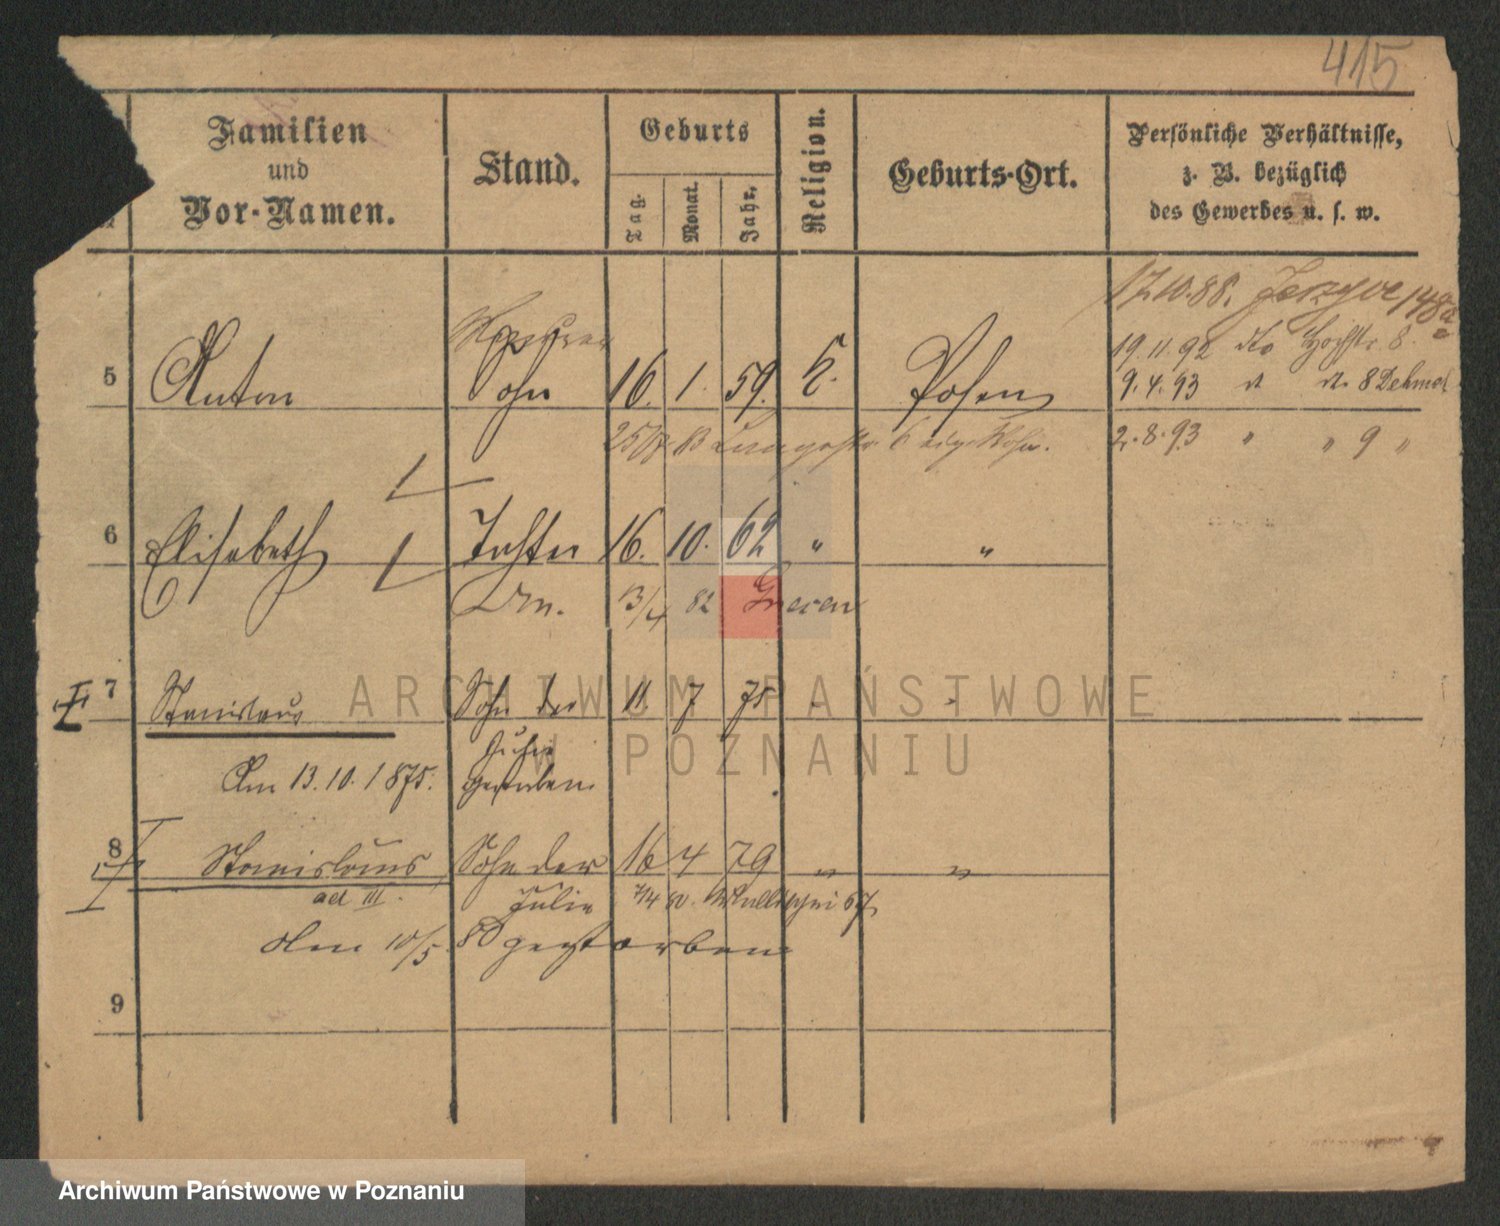 415
Familien
und
Vor-Namen.
Stand.
Geburts
Tag.
Monat.
Jahr.
Religion.
Geburts-Ort.
Persönliche Verhältnisse,
z. B. bezüglich
des Gewerbes u. s. w.
17.10.88. Jerzyce 148a
19.11.92 dto Hochstr. 8.
5 Anton Sohn 16. 1. 59. k. Posen
9.4.93 d. d. 8
Langestr. 6
2.8.93 " " 9 "
6 Elisabeth Tochter 16. 10. 62 " "
13/4 82 Gnesen
7 Stanislaus Sohn der 11. 7 75
Julie
Am 13.10.1875. gestorben.
8 Stanislaus Sohn der 16 4 79 " "
ad III.
Julie 7/4 80. Wallischei 67
Den 10/5. 80 gestorben
9
ARCHIWUM PAŃSTWOWE
W POZNANIU
Archiwum Państwowe w Poznaniu